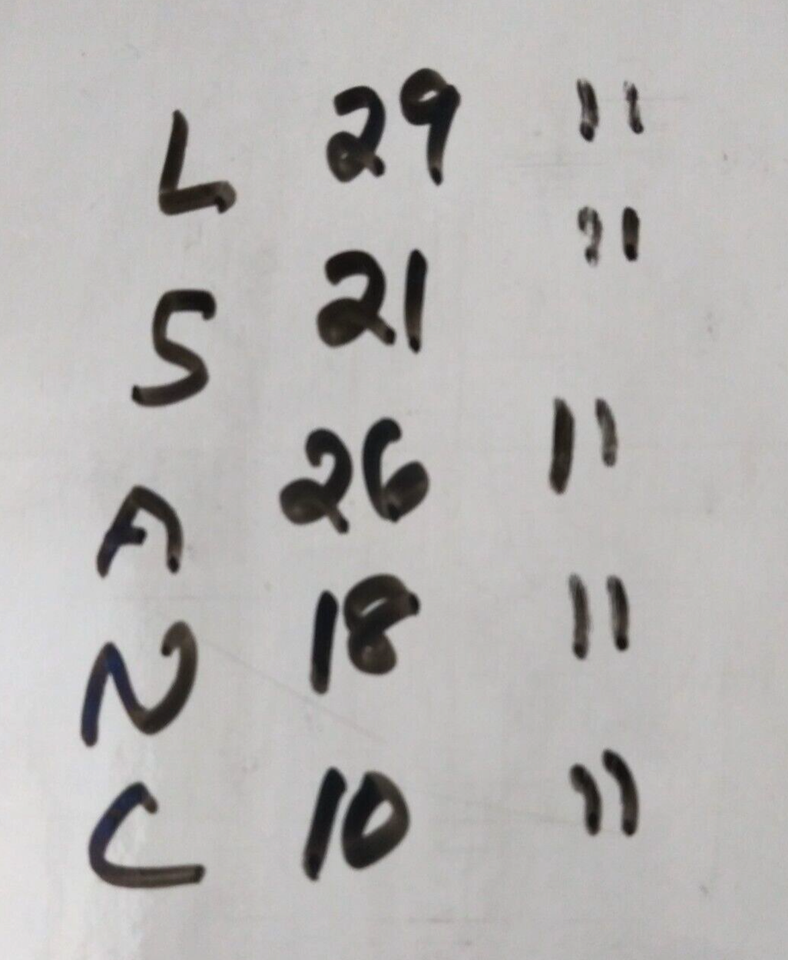 L 29 "
S 21 "
A 26 "
N 18 "
C 10 "